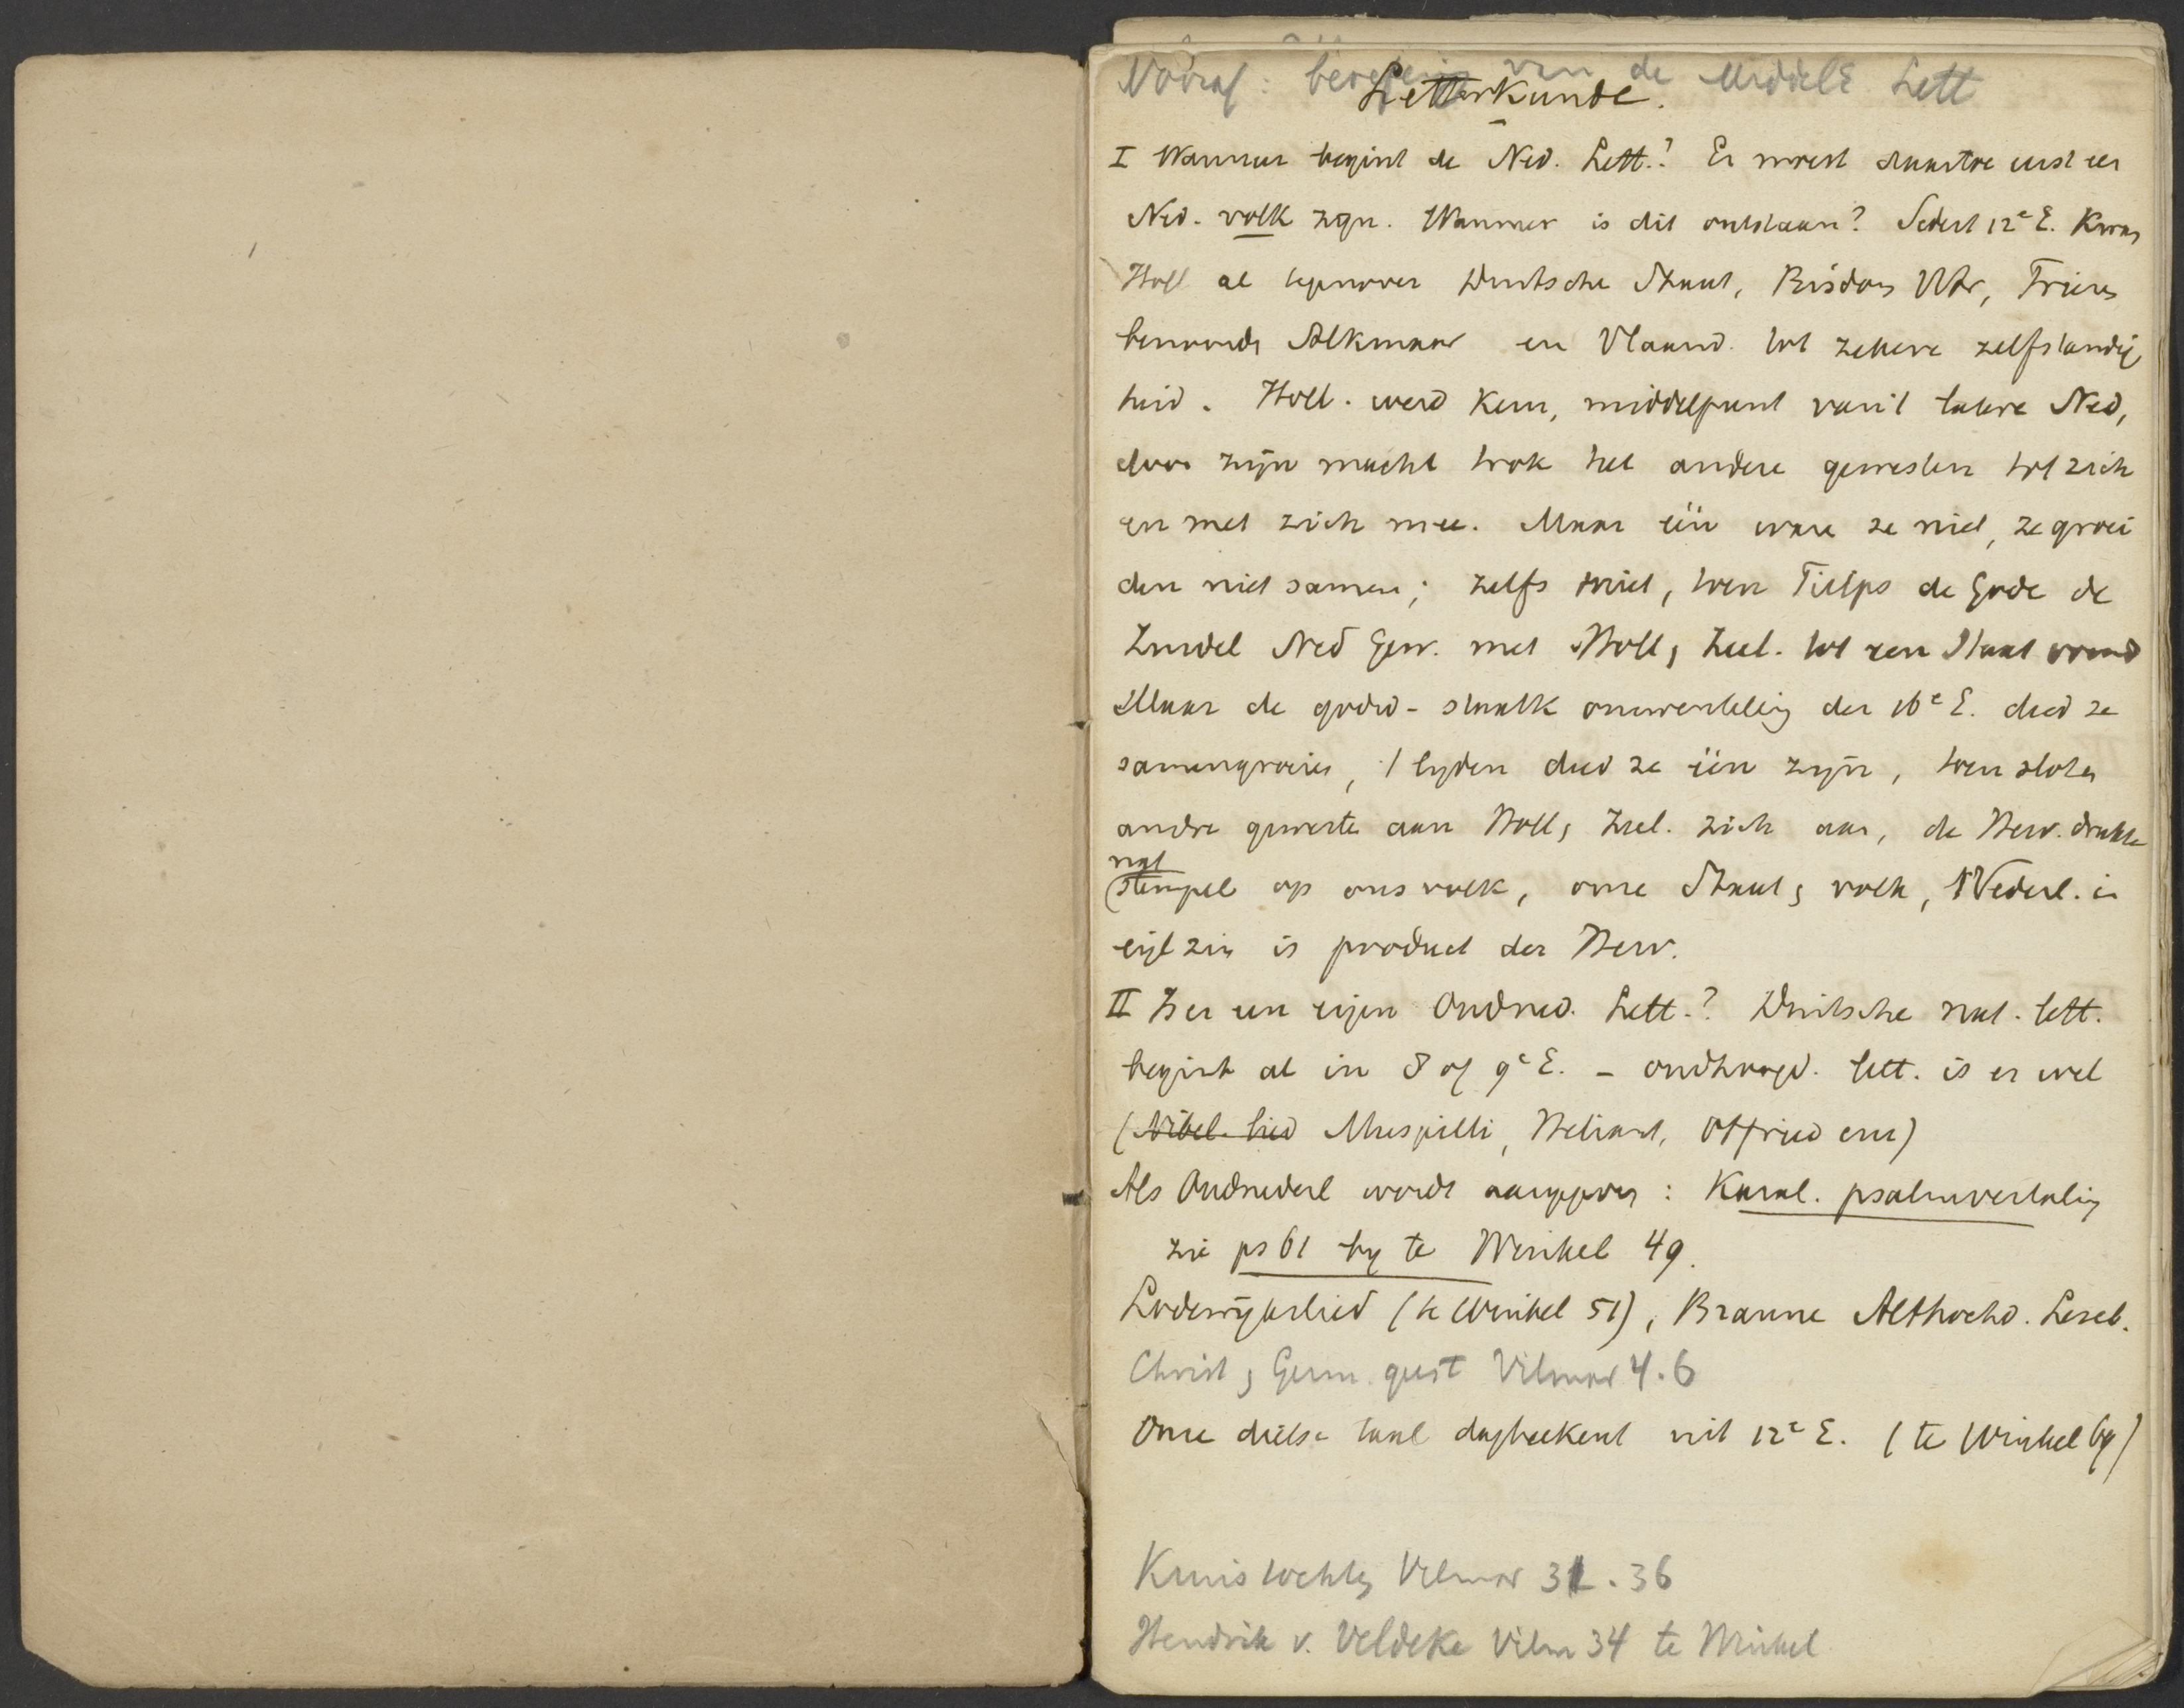 Vooraf: van de Middele Lett
Letterkunde.
I Wanneer begint de Ned. Lett.? Er moest daartoe eerst een
Ned. volk zijn. Wanneer is dit ontstaan? Sedert 12e E. kwam
Holl al tegenover Duitsche Staat, Bisdom Utr, Friezen
benoorden Alkmaar en Vlaand. tot zekere zelfstandig
heid. Holl. werd kern, middelpunt van 't latere Ned,
door zijn macht trok het andere gewesten tot zich
en met zich mee. Maar één ware ze niet, ze groei
den niet samen; zelfs niet, toen Filips de Goede de
Zuidel Ned Gew. met Holl, Zeel. tot een Staat
Maar de godsd-staatk omwenteling der 16e E. deed ze
samengroeien, 't lijden deed ze één zijn, toen sloten
andre geweste aan Holl, Zeel. zich aan, de Herv. drukte
nat
stempel op ons volk, onze Staat, volk, Nederl. in
eigl zin is product der Herv.
II Is er een eigen Oudned. Lett.? Duitsche nat. lett.
begint al in 8 of 9e E. - oudhoogd. lett. is er wel
(Nibel. lied Muspilli, Heliand, Otfried enz)
Als Oudnederl wordt aangegeven: Karol. psalmvertaling
zie ps 61 by te Winkel 49.
Lodewijkslied (te Winkel 51), Braune Althochd. Leseb.
Christ, Germ. geest Vilmar 4.6
Onze dietse taal dagteekent uit 12e E. (te Winkel 69)
Kruistochten Vilmar 31.36
Hendrik v. Veldeke Vilm 34 te Winkel